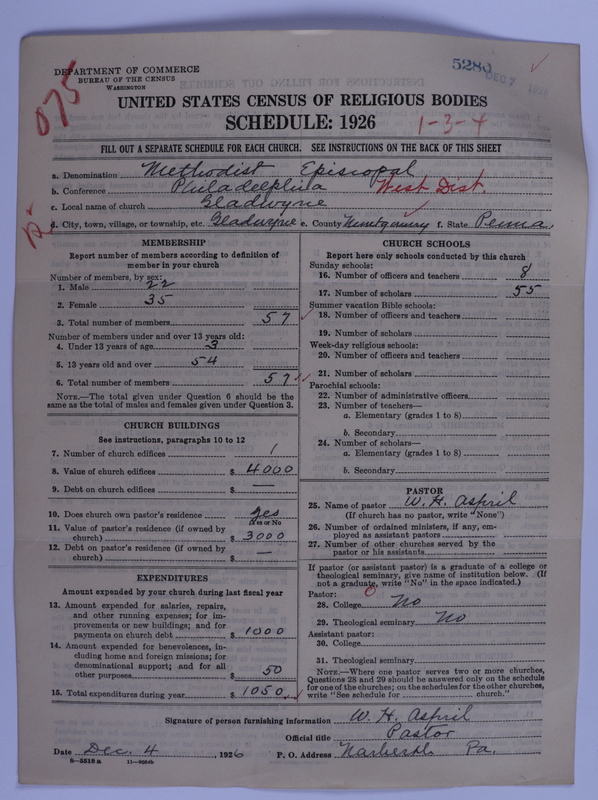 DEPARTMENT OF COMMERCE
BUREAU OF THE CENSUS
WASHINGTON
5280
DEC 7
075
UNITED STATES CENSUS OF RELIGIOUS BODIES
SCHEDULE: 1926
1-3-4
FILL OUT A SEPARATE SCHEDULE FOR EACH CHURCH. SEE INSTRUCTIONS ON THE BACK OF THIS SHEET
a. Denomination Methodist Episcopal
b. Conference Philadelphia West Dist.
c. Local name of church Gladwyne
d. City, town, village, or township, etc. Gladwyne e. County Montgomery f. State Penna.
MEMBERSHIP
Report number of members according to definition of
member in your church
Number of members, by sex:
1. Male 22
2. Female 35
3. Total number of members 57
Number of members under and over 13 years old:
4. Under 13 years of age 3
5. 13 years old and over 54
6. Total number of members 57
NOTE.—The total given under Question 6 should be the
same as the total of males and females given under Question 3.
CHURCH BUILDINGS
See instructions, paragraphs 10 to 12
7. Number of church edifices 1
8. Value of church edifices $ 4000
9. Debt on church edifices $ —
10. Does church own pastor's residence yes
Yes or No
11. Value of pastor's residence (if owned by
church) $ 3000
12. Debt on pastor's residence (if owned by
church) $ —
EXPENDITURES
Amount expended by your church during last fiscal year
13. Amount expended for salaries, repairs,
and other running expenses; for im-
provements or new buildings; and for
payments on church debt $ 1000
14. Amount expended for benevolences, in-
cluding home and foreign missions; for
denominational support; and for all
other purposes $ 50
15. Total expenditures during year $ 1050
CHURCH SCHOOLS
Report here only schools conducted by this church
Sunday schools:
16. Number of officers and teachers 8
17. Number of scholars 55
Summer vacation Bible schools:
18. Number of officers and teachers
19. Number of scholars
Week-day religious schools:
20. Number of officers and teachers
21. Number of scholars
Parochial schools:
22. Number of administrative officers
23. Number of teachers—
a. Elementary (grades 1 to 8)
b. Secondary
24. Number of scholars—
a. Elementary (grades 1 to 8)
b. Secondary
PASTOR
25. Name of pastor W. H. Aspril
(If church has no pastor, write "None")
26. Number of ordained ministers, if any, em-
ployed as assistant pastors
27. Number of other churches served by the
pastor or his assistants
If pastor (or assistant pastor) is a graduate of a college or
theological seminary, give name of institution below. (If
not a graduate, write "No" in the space indicated.)
Pastor:
28. College No
29. Theological seminary No
Assistant pastor:
30. College
31. Theological seminary
NOTE.—Where one pastor serves two or more churches,
Questions 28 and 29 should be answered only on the schedule
for one of the churches; on the schedules for the other churches,
write "See schedule for church."
Signature of person furnishing information W. H. Aspril
Official title Pastor
Date Dec. 4, 1926 P. O. Address Narberth Pa.
8-5518 a 11-9264b